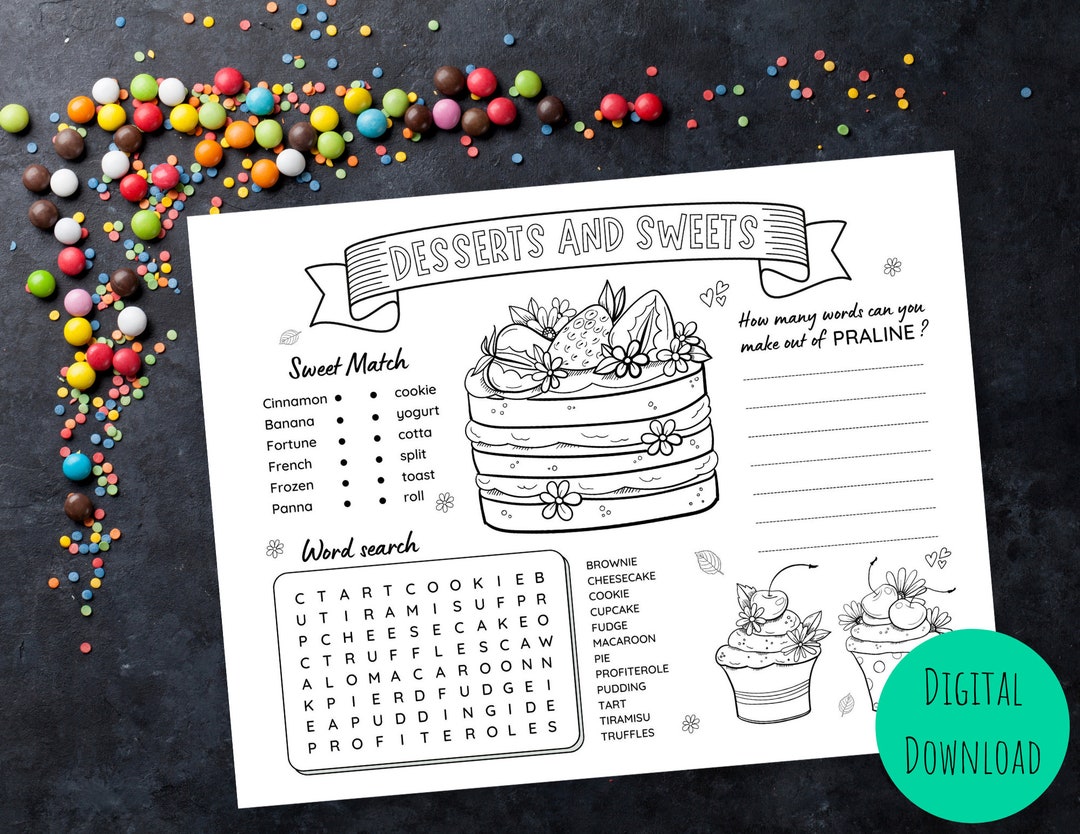 DESSERTS AND SWEETS
Sweet Match
Cinnamon • • cookie
Banana • • yogurt
Fortune • • cotta
French • • split
Frozen • • toast
Panna • • roll
How many words can you
make out of PRALINE?
Word search
C T A R T C O O K I E B
U T I R A M I S U F P R
P C H E E S E C A K E O
C T R U F F L E S C A W
A L O M A C A R O O N N
K P I E R D F U D G E I
E A P U D D I N G I D E
P R O F I T E R O L E S
BROWNIE
CHEESECAKE
COOKIE
CUPCAKE
FUDGE
MACAROON
PIE
PROFITEROLE
PUDDING
TART
TIRAMISU
TRUFFLES
DIGITAL
DOWNLOAD